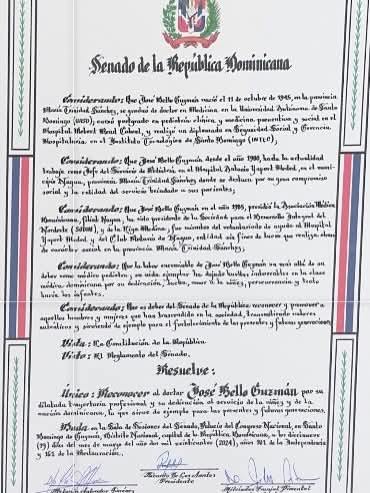 Senado de la República Dominicana
Considerando: Que José Bello Guzmán nació el 11 de octubre de 1945, en la provincia
María Trinidad Sánchez, se graduó de doctor en Medicina, en la Universidad Autónoma de Santo
Domingo (UASD), cursó postgrado en pediatría clínica, y medicina preventiva y social en el
Hospital Robert Read Cabral, y realizó un diplomado en Seguridad Social y Gerencia
Hospitalaria, en el Instituto Tecnológico de Santo Domingo (INTEC);
Considerando: Que José Bello Guzmán, desde el año 1980, hasta la actualidad
trabaja como Jefe del Servicio de Pediatría, en el Hospital Antonio Yaport Heded, en el muni-
cipio Nagua, provincia María Trinidad Sánchez donde se destaca por su gran compromiso
social y la calidad del servicio brindado a sus pacientes;
Considerando: Que José Bello Guzmán, en el año 1985, presidió la Asociación Médica
Dominicana, filial Nagua, ha sido presidente de la Sociedad para el Desarrollo Integral del
Nordeste y de la Liga Medina, fue miembro del voluntariado de ayuda al Hospital
Yaport Heded y del Club Rotario de Nagua, entidad sin fines de lucro que realiza obras
de carácter social en la provincia María Trinidad Sánchez;
Considerando: Que la labor encomiable de José Bello Guzmán va más allá de su
deber como médico pediatra; su vida ejemplar ha dejado huellas imborrables en la clase
médica dominicana por su dedicación, lucha, amor a la niñez, perseverancia y trato
hacia los infantes.
Considerando: Que es deber del Senado de la República reconocer y promover a
aquellos hombres y mujeres que han trascendido en la sociedad, transmitiendo valores
auténticos y sirviendo de ejemplo para el fortalecimiento de las presentes y futuras generaciones.
Vista: La Constitución de la República
Visto: El Reglamento del Senado.
Resuelve:
Único: Reconocer al doctor José Bello Guzmán por su
dilatada trayectoria profesional, y su dedicación al servicio de la niñez y de la
nación dominicana, lo que sirve de ejemplo para las presentes y futuras generaciones.
Dada en la Sala de Sesiones del Senado, Palacio del Congreso Nacional, en Santo
Domingo de Guzmán, Distrito Nacional, capital de la República Dominicana, a los diecinueve
(19) días del mes de marzo del año dos mil veinticuatro (2024), años 181 de la Independencia
y 161 de la Restauración.
Ricardo De Los Santos
Presidente
Pimentel